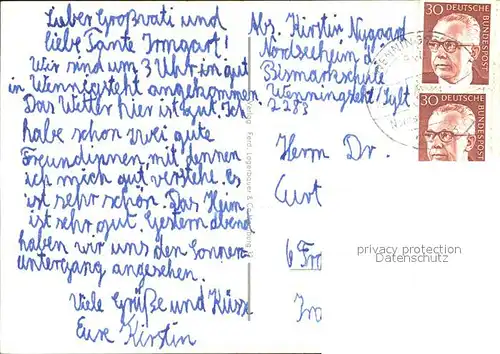 Lieber Großvati und
liebe Tante Irmgart!
Wir sind um 3 Uhr in gut
in Wennigsteht angekommen.
Das Wetter hier ist gut. Ich
habe schon zwei gute
Freundinnen mit dennen
ich mich gut verstehe. Es
ist sehr schön. Das Heim
ist sehr gut. Gestern abend
haben wir uns den Sonnen
untergang angesehen.
Viele Grüße und Küsse
Eure Kirstin
Abs. Kirstin Nygaard
Nordseeheim d.
Bismarkschule
Wenningsteht/Sylt
2283
Herrn Dr.
Curt
6 Fr
30 DEUTSCHE BUNDESPOST
30 DEUTSCHE BUNDESPOST
privacy protection
Datenschutz